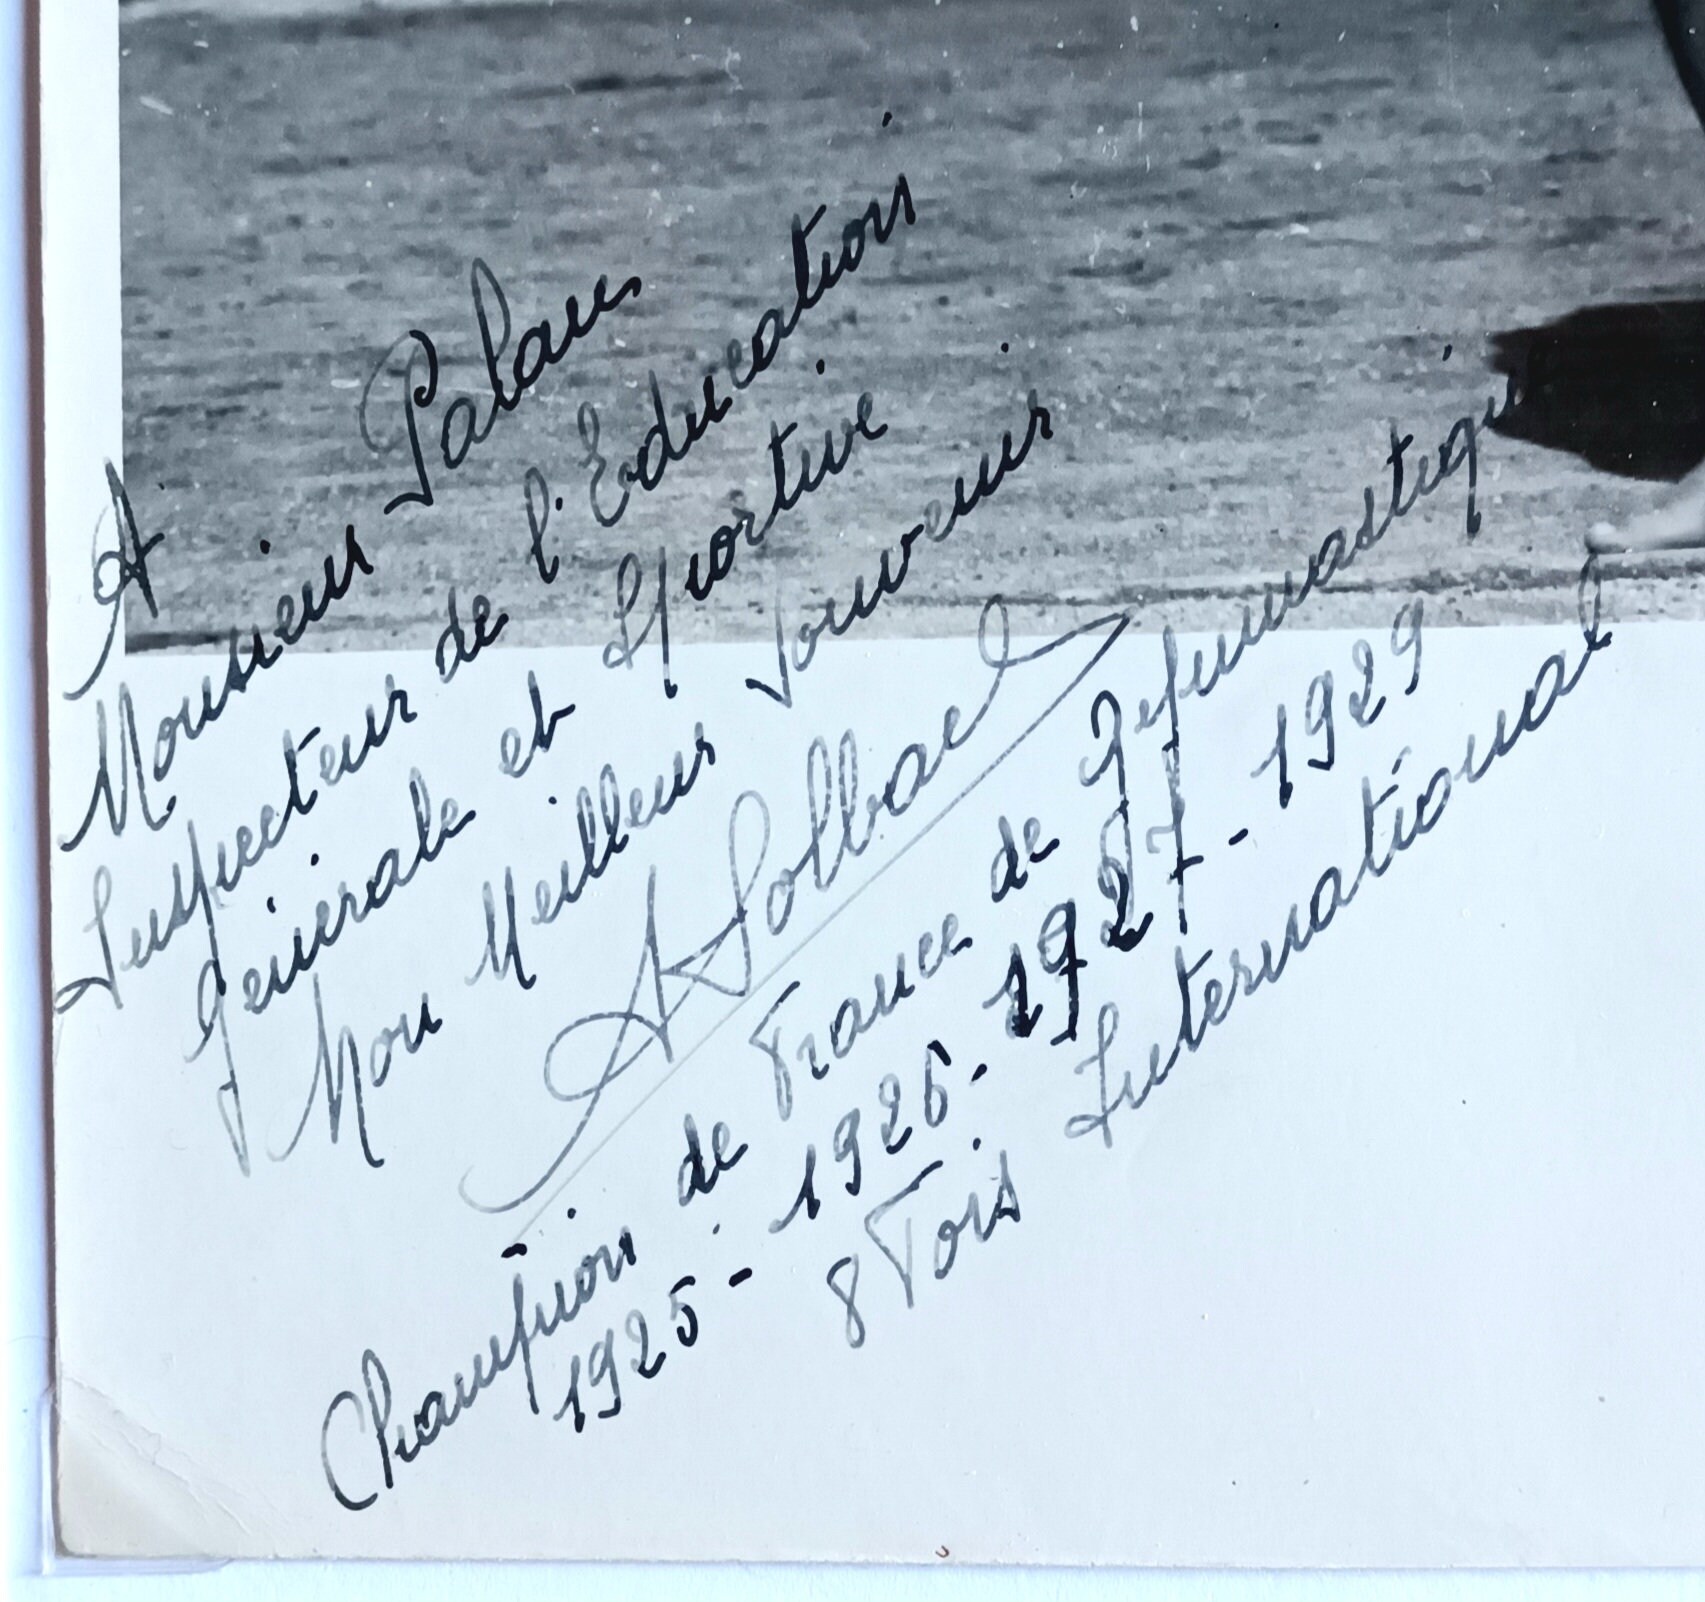 A
Monsieur Palau
Inspecteur de l'Education
Générale et Sportive
Mon Meilleur Souvenir
A Solbach
Champion de France de Gymnastique
1925 - 1926 - 1927 - 1929
8 Fois International